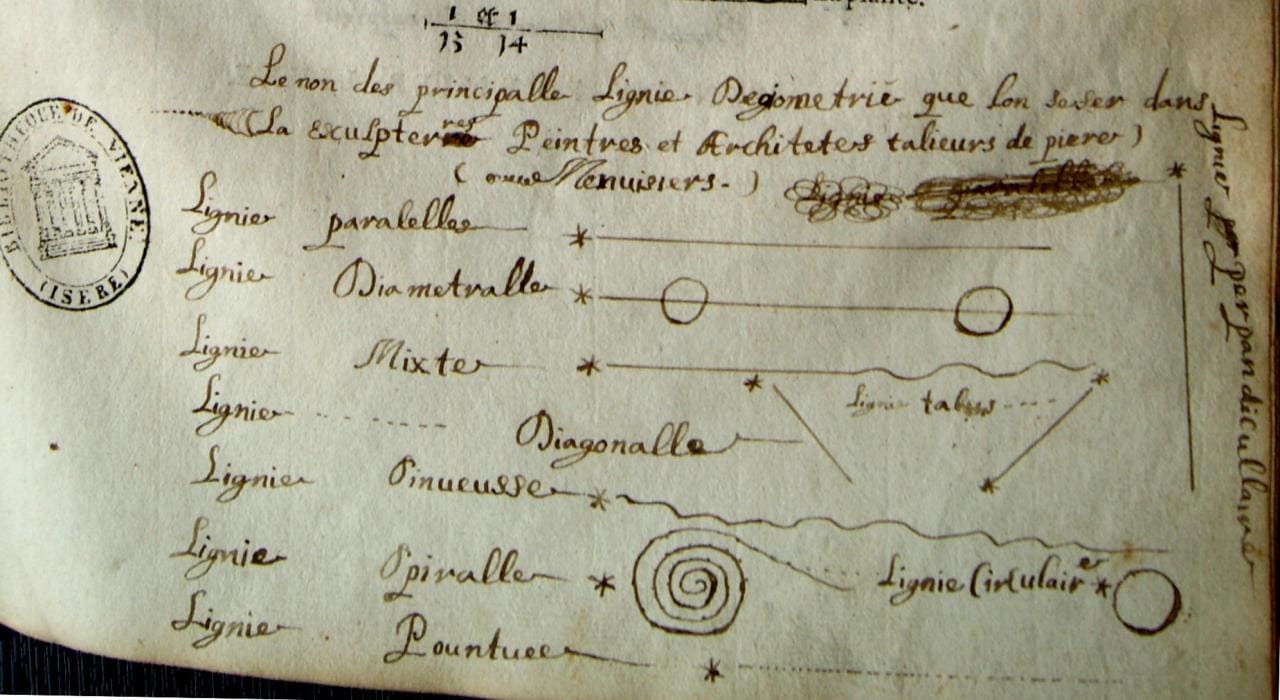 la plante.
1 et 1
15 14
Le non des principalle Lignie Degiometrie que lon se ser dans
(La sculpterres Peintres et Architetes talieurs de piere)
( Menuisiers. )
Lignie
Lignie paralelle
Lignie Diametralle
Lignie Mixte
Lignie
Lignie Diagonalle
Lignie Sinueusse
Lignie Spiralle
Lignie Circulaire
Lignie Pountuee
Lignie perpandicullaire
BIBLIOTHEQUE DE VIENNE.
(ISERE)